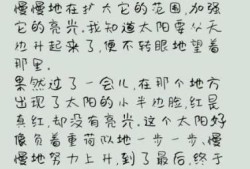 慢慢地在扩大它的范围,加强
它的亮光。我知道太阳要从天
边升起来了,便不转眼地望着
那里。
果然过了一会儿,在那个地方
出现了太阳的小半边脸,红是
真红,却没有亮光。这个太阳好
像负着重荷似地一步一步、慢
慢地努力上升,到了最后,终于